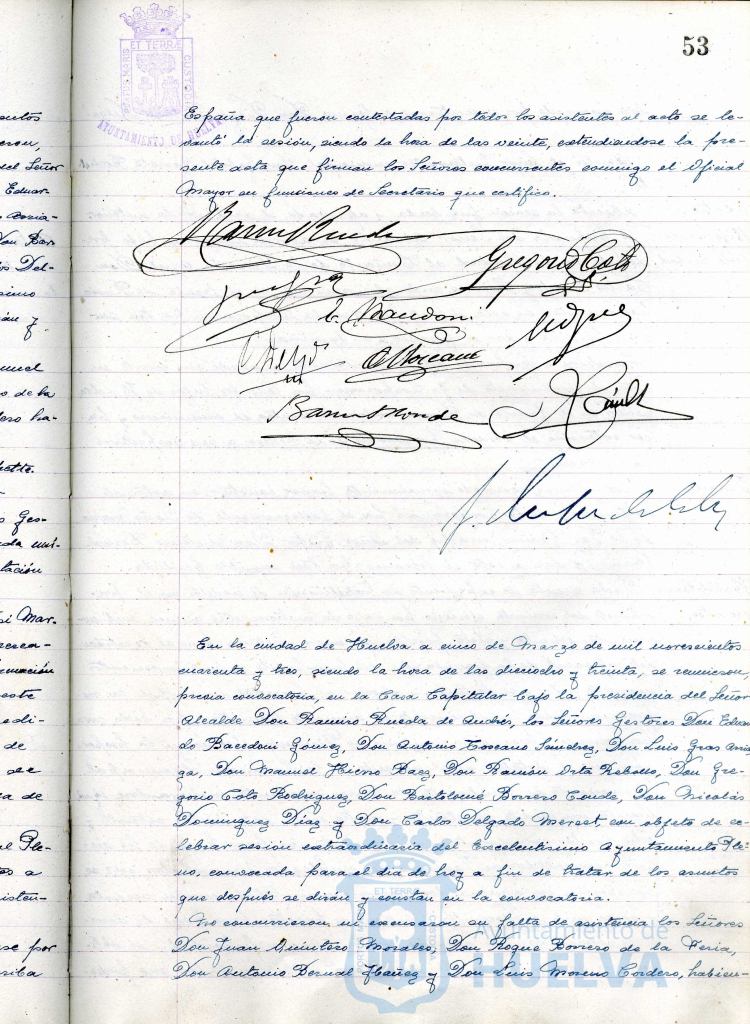 53
PORTUS MARIS ET TERRÆ CUSTODIA
AYUNTAMIENTO DE HUELVA
España que fueron contestadas por todos los asistentes al acto se le-
vantó la sesión, siendo la hora de las veinte, extendiendose la pre-
sente acta que firman los Señores concurrentes conmigo el Oficial
Mayor en funciones de Secretario que certifico.
Gregorio Coto
En la ciudad de Huelva a cinco de Marzo de mil novecientos
cuarenta y tres, siendo la hora de las dieciocho y treinta, se reunieron,
previa convocatoria, en la Casa Capitular bajo la presidencia del Señor
Alcalde Don Ramiro Rueda de Andrés, los Señores Gestores Don Eduar
do Bacedoni Gómez, Don Antonio Toscano Sánchez, Don Luis Gras Arria
ga, Don Manuel Hierro Baez, Don Ramón Orta Rebollo, Don Gre-
gorio Coto Rodriguez, Don Bartolomé Borrero Conde, Don Nicolás
Dominguez Díaz y Don Carlos Delgado Merset, con objeto de ce-
lebrar sesión extraordinaria del Excelentísimo Ayuntamiento Ple-
no, convocada para el dia de hoy a fin de tratar de los asuntos
que después se dirán y constan en la convocatoria.
No concurrieron ni excusaron su falta de asistencia los Señores
Don Juan Quintero Morales, Don Roque Borrero de la Feria,
Don Antonio Bernal Ibañez y Don Luis Moreno Cordero, habien-
Ayuntamiento de
HUELVA